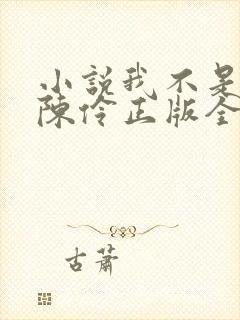 小說我不是
陳伶正版全
古蕭